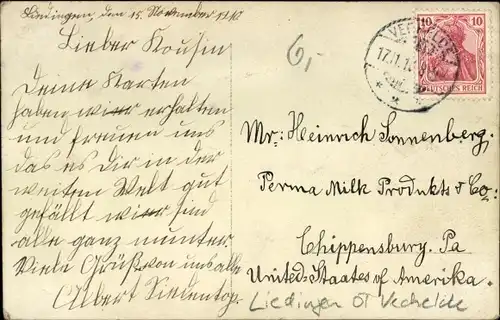 Liedingen, den 15. November 1910
Lieber Kousin
Deine Karten
haben wier erhalten
und freuen uns
das es Dir in der
weiten Welt gut
gefällt wier sind
alle ganz munter.
Viele Grüße von uns alle
Albert Siedentop
6,-
17.11.1
10 10
DEUTSCHES REICH
Mr: Heinrich Sonnenberg:
Perma Milk Produkts & Co:
Chippensburg. Pa
United-Staates of Amerika.
Liedingen OT Vechelde